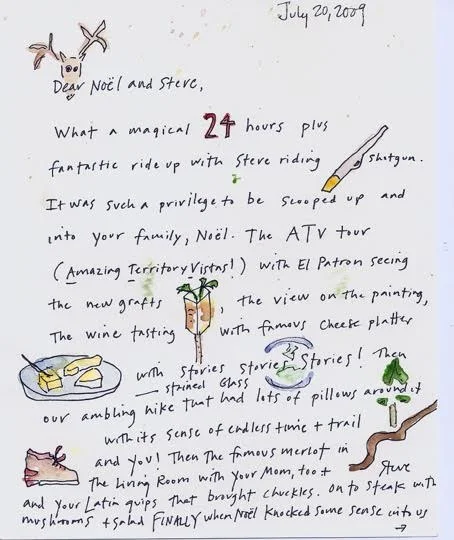 July 20, 2009
Dear Noël and Steve,
What a magical 24 hours plus
fantastic ride up with Steve riding shotgun.
It was such a privilege to be scooped up and
into your family, Noël. The ATV tour
(Amazing Territory Vistas!) with El Patron seeing
the new grafts, the view on the painting,
The wine tasting with famous cheese platter
with stories stories stories! Then
stained Glass
our ambling hike that had lots of pillows around it
with its sense of endless time + trail
and you! Then the famous merlot in
the Living Room with your Mom, too +
Steve
and your Latin quips that brought chuckles. On to steak with
mushrooms + salad FINALLY when Noël knocked some sense into us
→